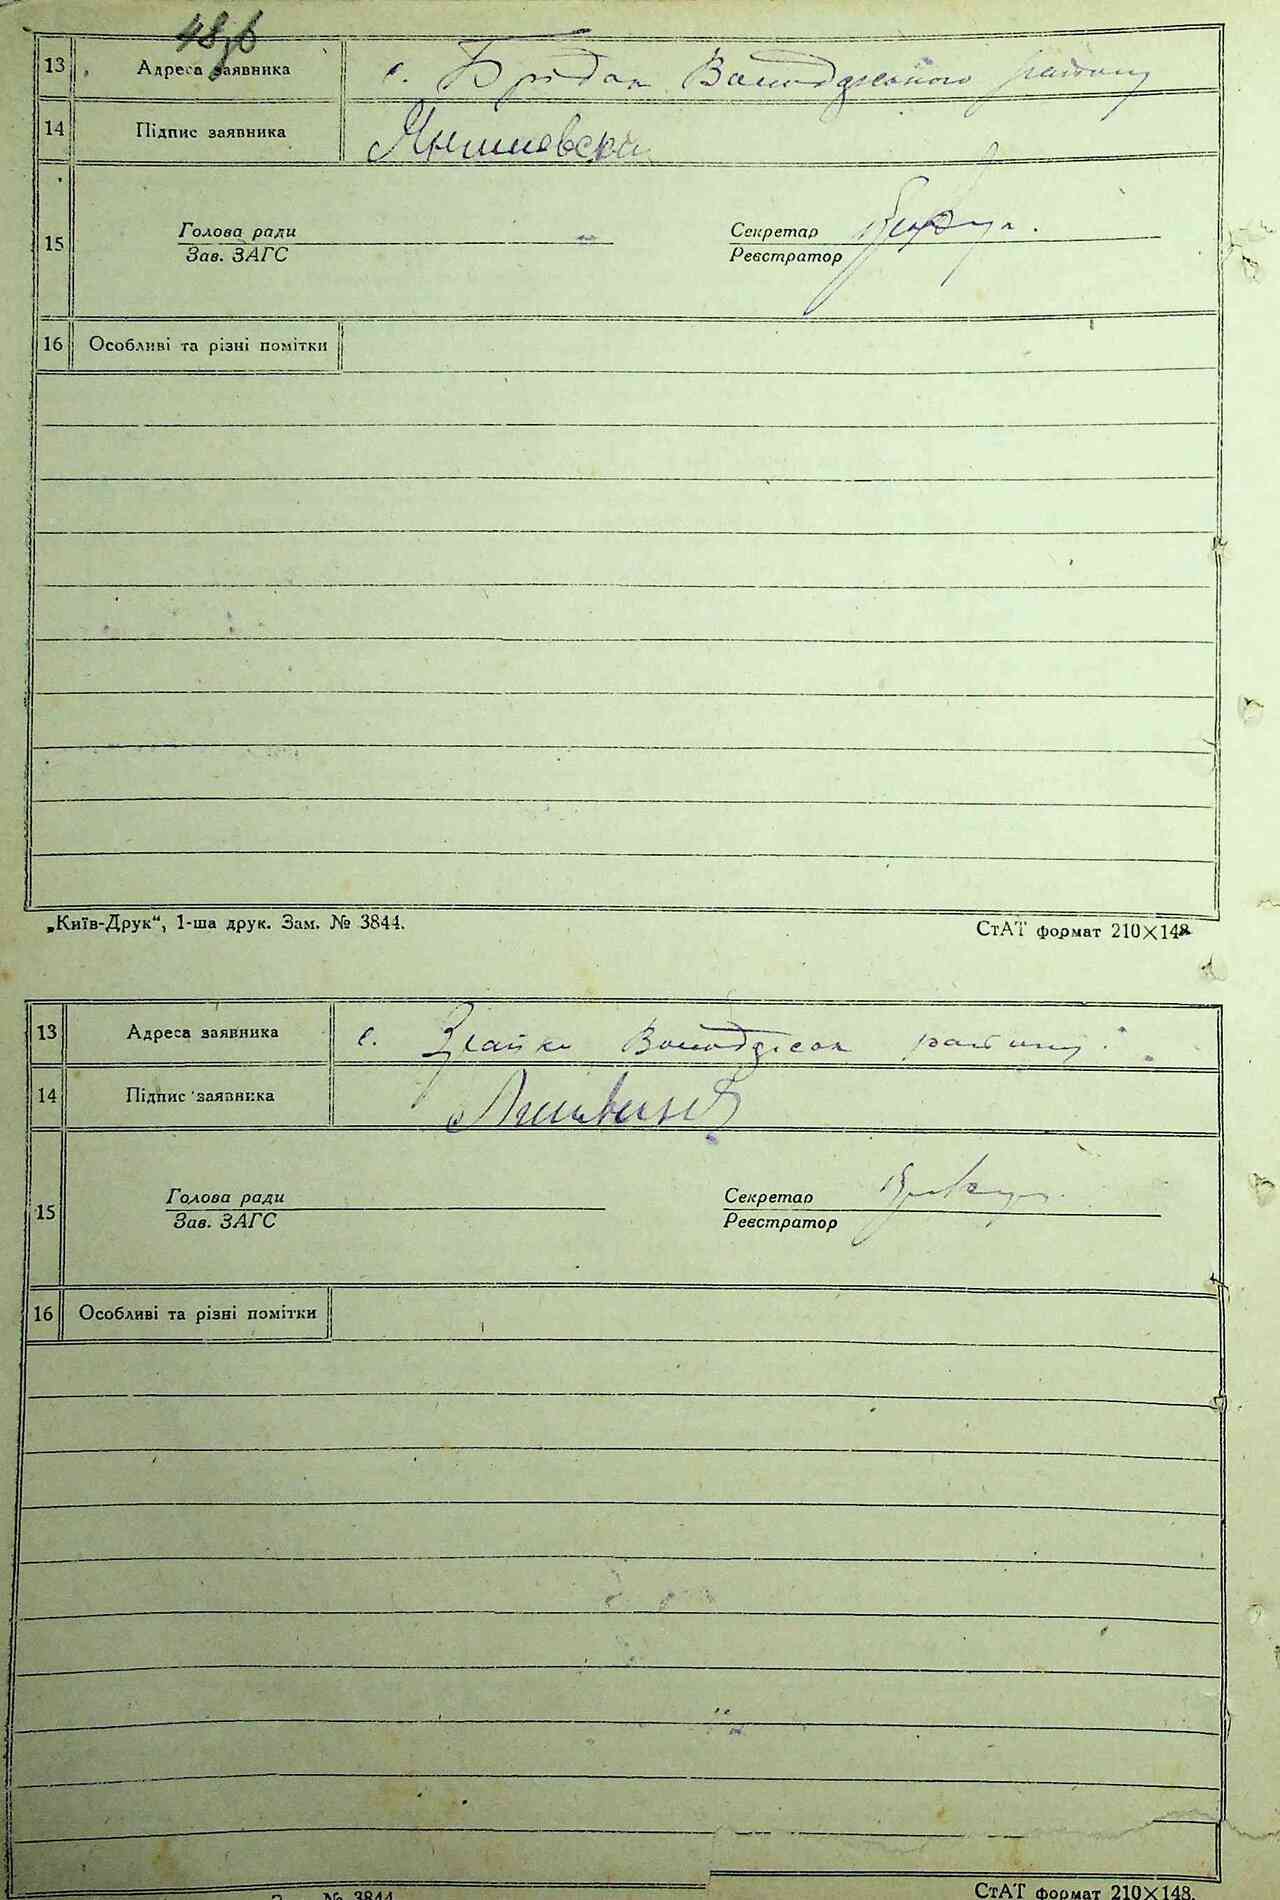 48зб
13 Адреса заявника с. Володарського району
14 Підпис заявника Янишевска
15 Голова ради Секретар
Зав. ЗАГС Реєстратор
16 Особливі та різні помітки
„Київ-Друк“, 1-ша друк. Зам. № 3844. СтАТ формат 210×148
13 Адреса заявника с. району
14 Підпис заявника
15 Голова ради Секретар
Зав. ЗАГС Реєстратор
16 Особливі та різні помітки
№ 3844 СтАТ формат 210×148.